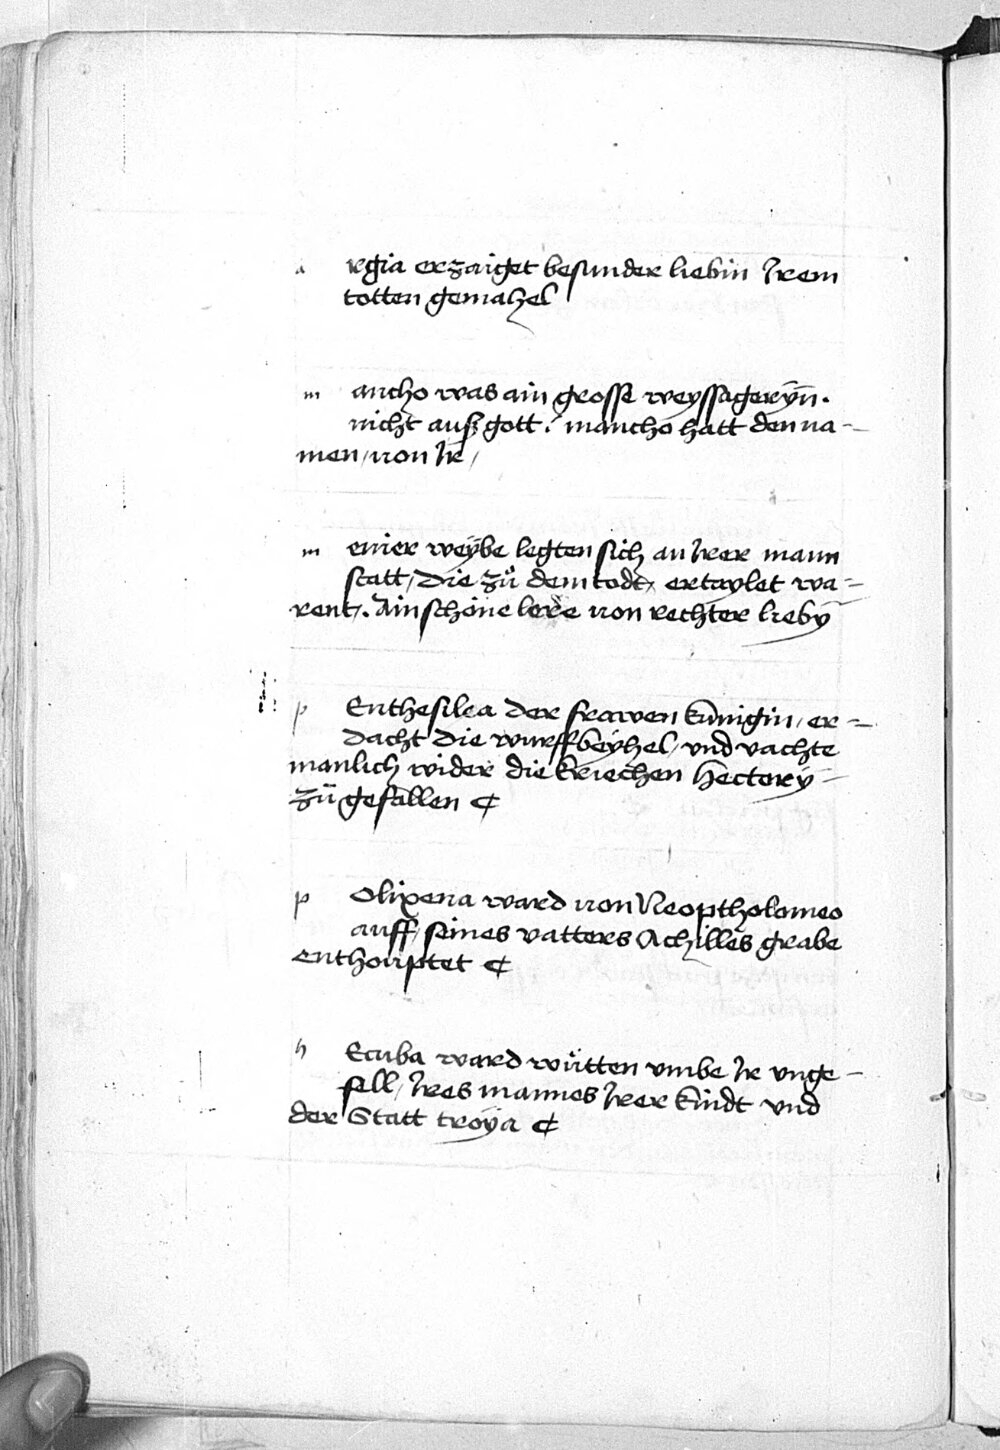 a rgia erzaiget besunder liebin Irem
totten gemahel
m ancho was ain grosse weyssageryn̄.
nicht auß gott. mancho hatt den na=
men / von Ir /
m enier weÿbe legten sich an Irer mann
statt / die zů dem todt / ertaylet wa=
rent. Ain schöne lere von rechter lieby
p Enthesilea der frawen künigin / er=
dacht die wurffbeÿhel / vnd vachte
manlich wider die kriechen Hectorÿ=
zů gefallen ¢
p Olixena ward von Neoptholomeo
auff / seines vatters Achilles grabe
enthouptet ¢
h Ecuba ward wütten vmbe Ir vnge=
fell / Ires mannes Irer kindt vnd
der Statt troÿa ¢